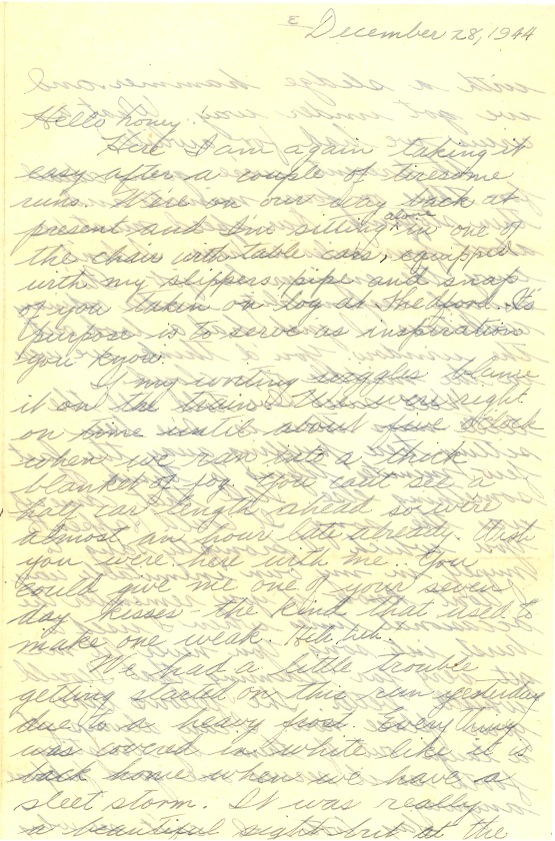 3
December 28, 1944
Hello honey!
Here I am again taking it
easy after a couple of tiresome
runs. We're on our way back at
present and I'm sitting alone in one of
the chair with table cars, equipped
with my slippers, pipe and snap
of you taken on log at Medford. It's
purpose is to serve as inspiration
you know.
If my writing wiggles blame
it on the train. We were right
on time until about five o'clock
when we ran into a thick
blanket of fog. You can't see a
half car length ahead so we're
almost an hour late already. Wish
you were here with me. You
could give me one of your seven
day kisses - the kind that used to
make one weak. Heh, heh.
We had a little trouble
getting started on this run yesterday
due to a heavy frost. Everything
was covered in white like it is
back home when we have a
sleet storm. It was really
a beautiful sight but at the